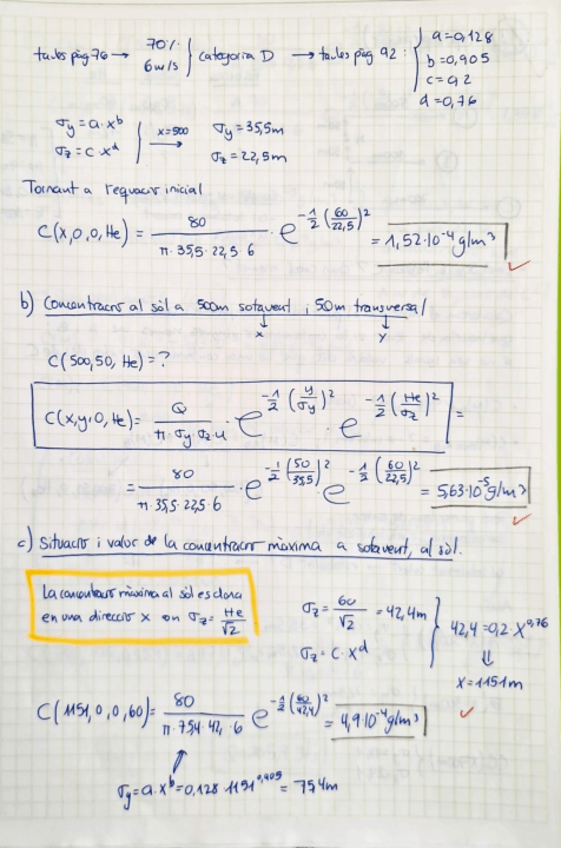 taules pàg 76 → 70% 6 w/s } categoria D → taules pàg 92: { a=0,128
b=0,905
c=0,2
d=0,76
σy = a·x^b
σz = c·x^d } x=500 → σy = 35,5m
σz = 22,5m
Tornant a l'equació inicial
C(x,0,0,He) = 80 / (π·35,5·22,5·6) · e^(-1/2 (60/22,5)^2) = 1,52·10^-4 g/m^3 ✓
b) Concentració al sòl a 500m sotavent i 50m transversal
↓ x ↓ y
C(500,50,He) = ?
C(x,y,0,He) = Q / (π·σy·σz·u) · e^(-1/2 (y/σy)^2) · e^(-1/2 (He/σz)^2) =
= 80 / (π·35,5·22,5·6) · e^(-1/2 (50/35,5)^2) · e^(-1/2 (60/22,5)^2) = 5,63·10^-5 g/m^3 ✓
c) Situació i valor de la concentració màxima a sotavent, al sòl.
La concentració màxima al sòl es dona
en una direcció x on σz = He/√2
σz = 60/√2 = 42,4m
σz = c·x^d } 42,4 = 0,2·x^0,76
⇓
x = 1151m
C(1151,0,0,60) = 80 / (π·75,4·42,4·6) e^(-1/2 (60/42,4)^2) = 4,9·10^-4 g/m^3 ✓
σy = a·x^b = 0,128·1151^0,905 = 75,4m